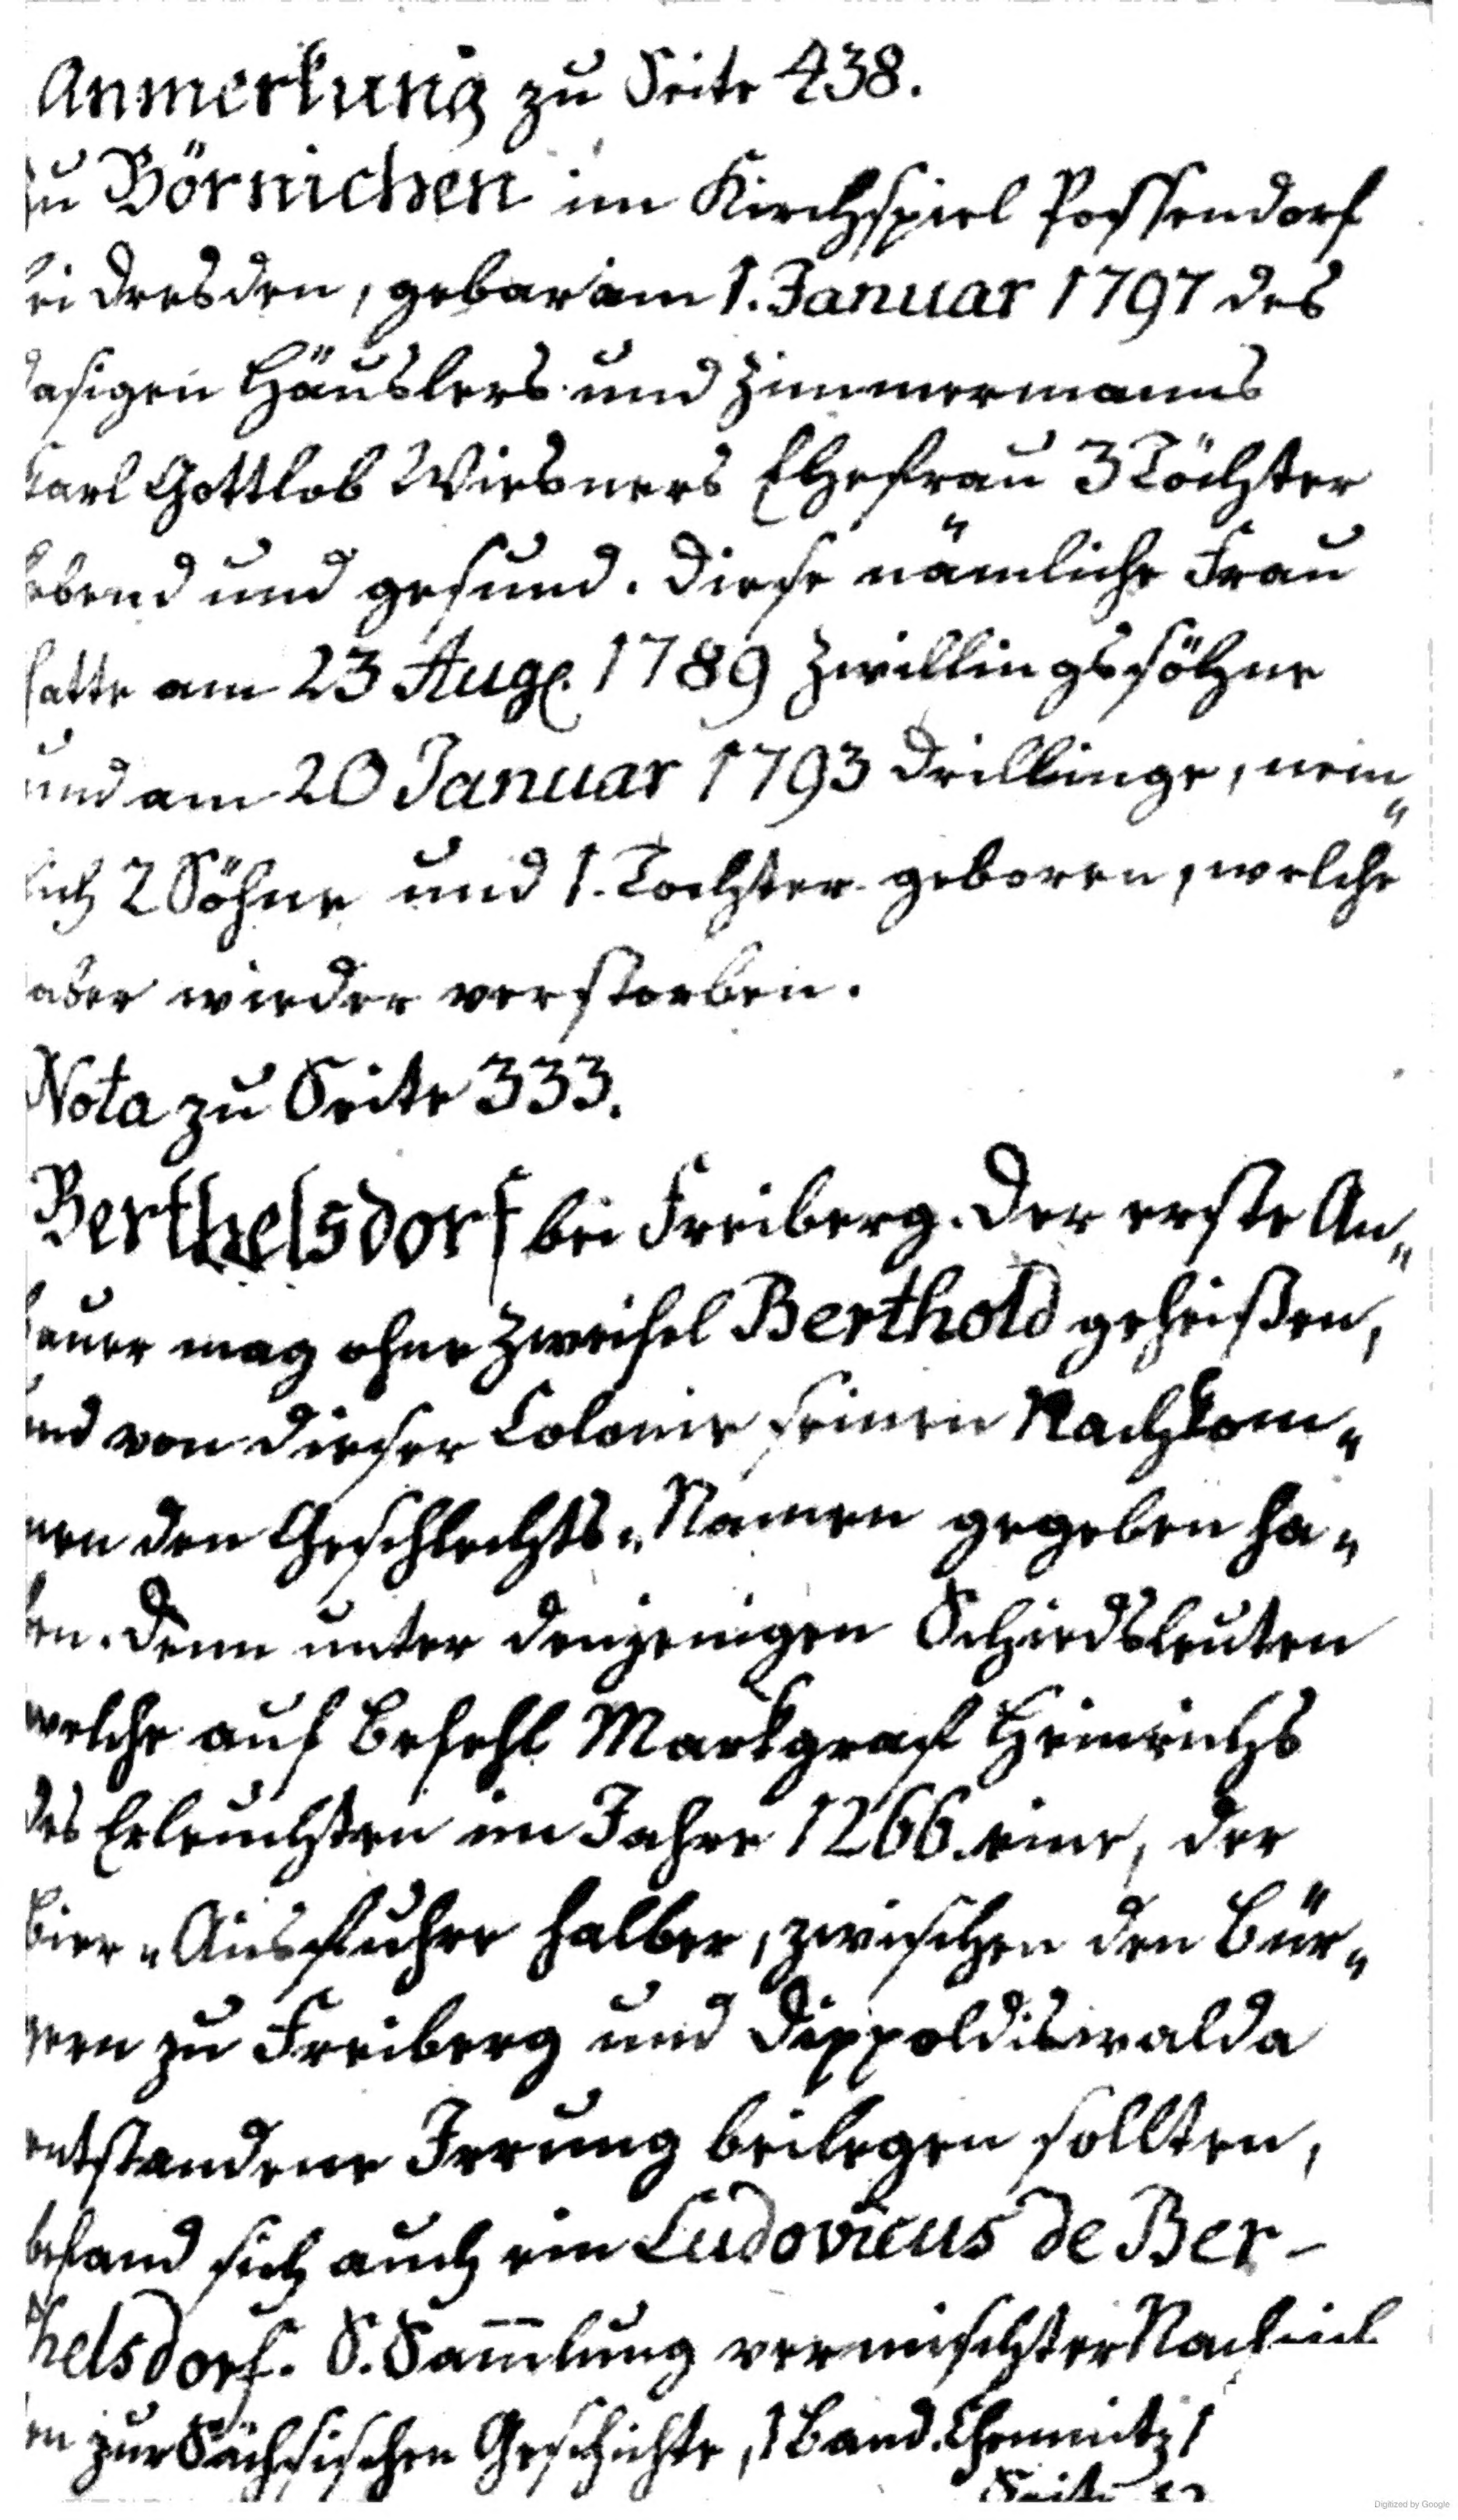 Anmerkung zu Seite 438.
zu Börnichen im Kirchspiel Possendorf
bei Dresden, gebar am 1. Januar 1797 des
dasigen Häuslers und Zimmermanns
Carl Gottlob Wiesners Ehefrau 3 Töchter
lebend und gesund. Diese nämliche Frau
hatte am 23 Aug. 1789 Zwillingssöhne
und am 20 Januar 1793 Drillinge, nem„
lich 2 Söhne und 1. Tochter geboren, welche
aber wieder verstorben.
Nota zu Seite 333.
Berthelsdorf bei Freiberg. Der erste An„
bauer mag ohne Zweifel Berthold geheißen,
und von dieser Colonie seinen Nachkom„
men den Geschlechts„Namen gegeben ha„
ben. Denn unter denjenigen Schiedsleuten
welche auf Befehl Markgraf Heinrichs
des Erleuchten im Jahre 1266. eine, der
Bier„Ausfuhre halber, zwischen den Bür„
gern zu Freiberg und Dippoldiswalda
entstandene Irrung beilegen sollten,
befand sich auch ein Ludovicus de Ber-
thelsdorf. S. Sam̅lung vermischter Nachrich
ten zur Sächsischen Geschichte, 1 Band. Chemnitz
Seite
Digitized by Google